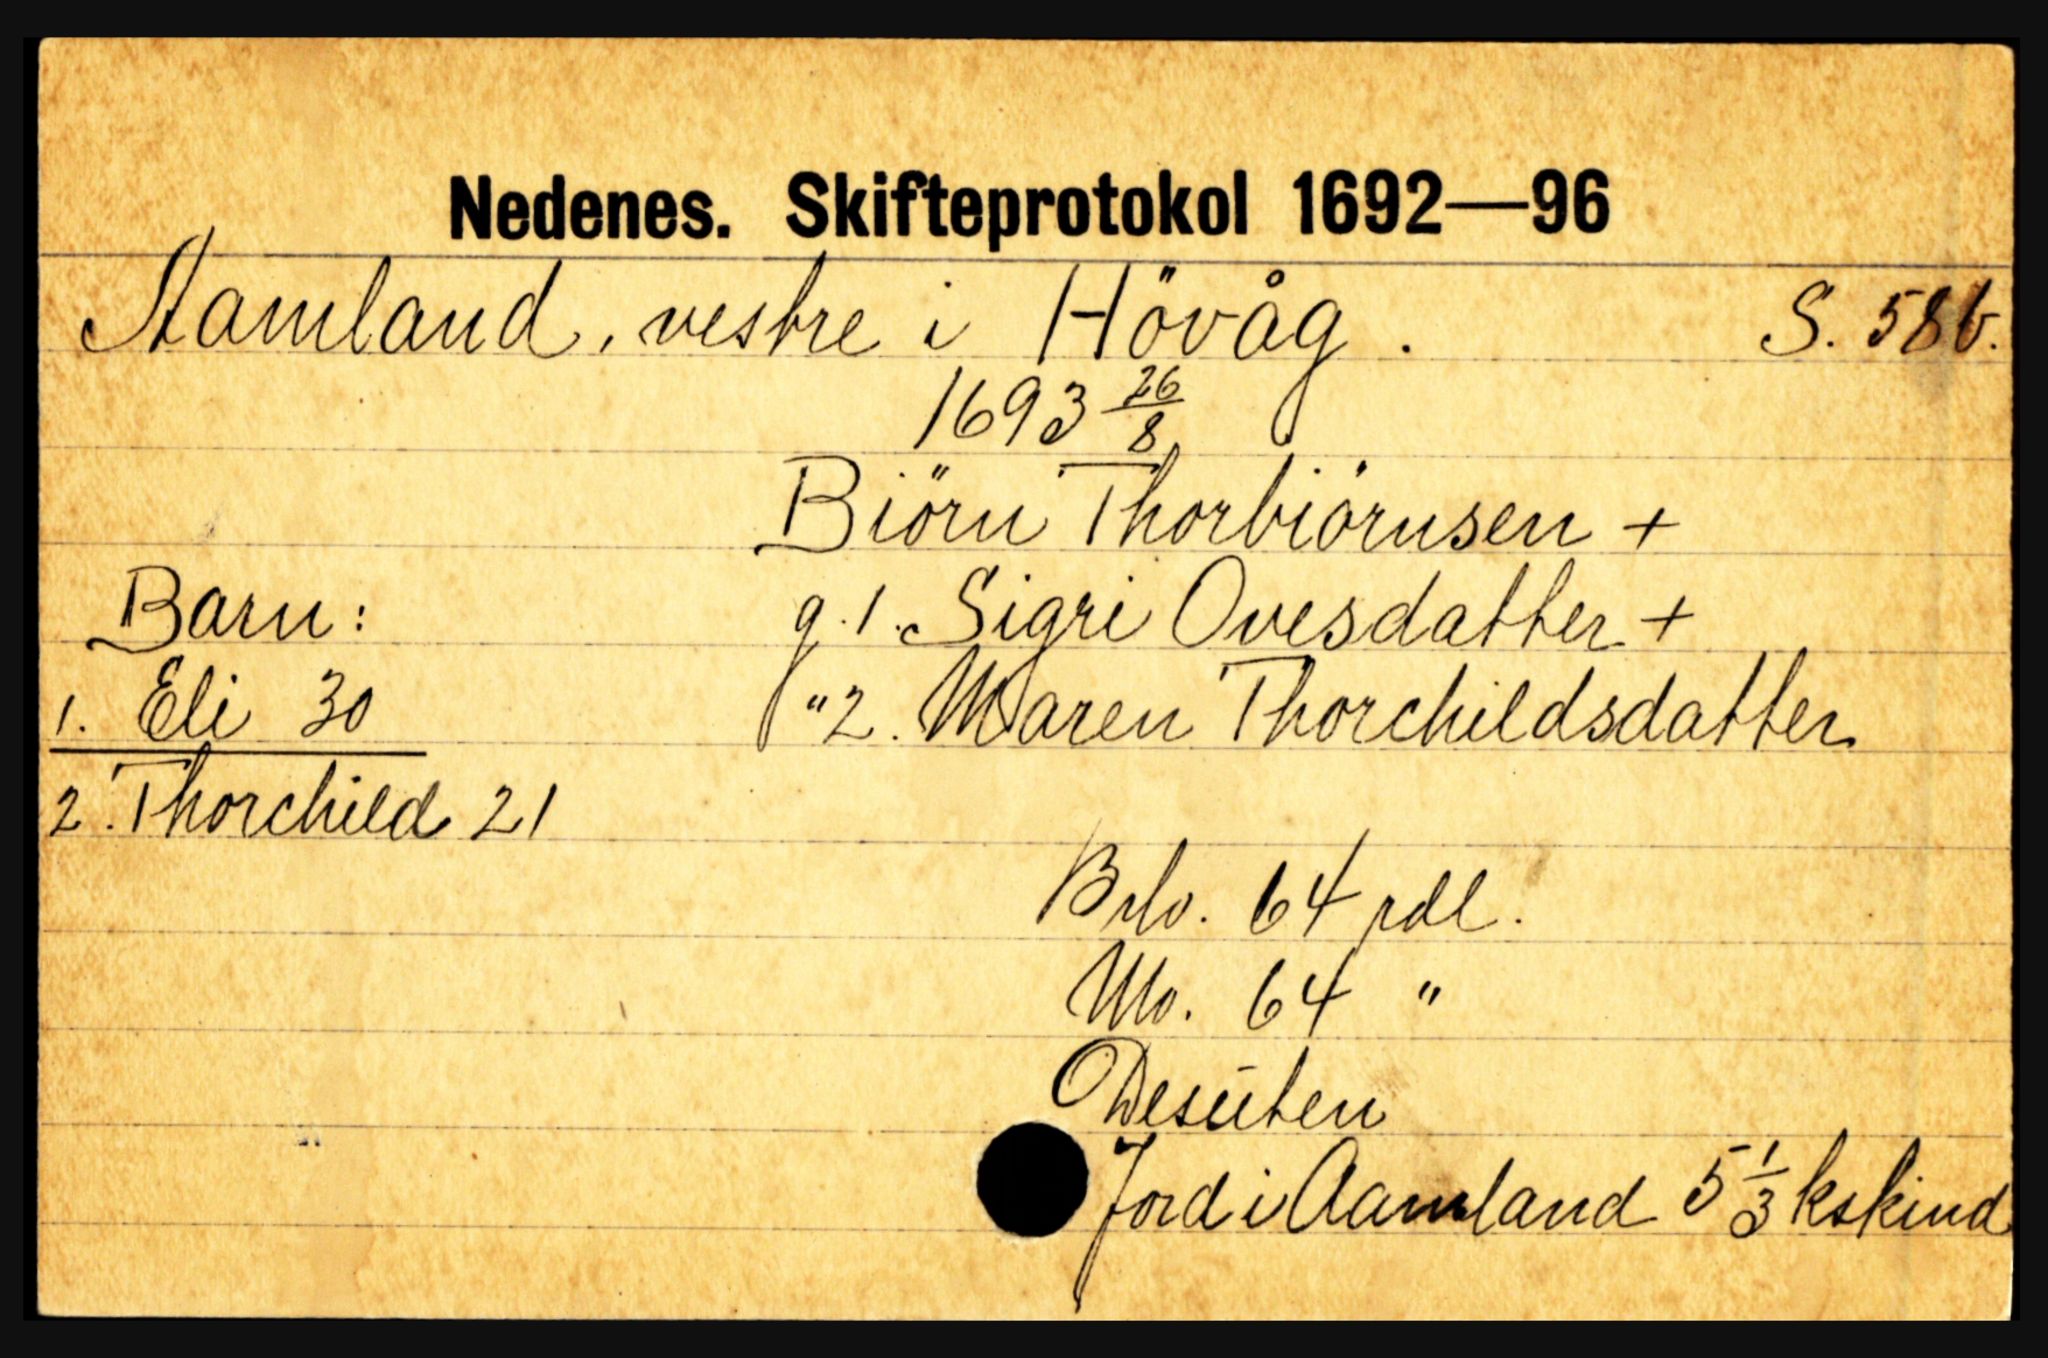 Nedenes. Skifteprotokol 1692—96
Aamland, vestre i Hövåg. S. 58b.
1693 26/8
Biörn Thorbiörnsen +
Barn: g. 1. Sigri Ovesdatter +
1. Eli 30 " 2. Maren Thorchildsdatter
2. Thorchild 21
Brlo. 64 rdl.
Mo. 64 "
Desuten
Jord i Aamland 5 1/3 kskind